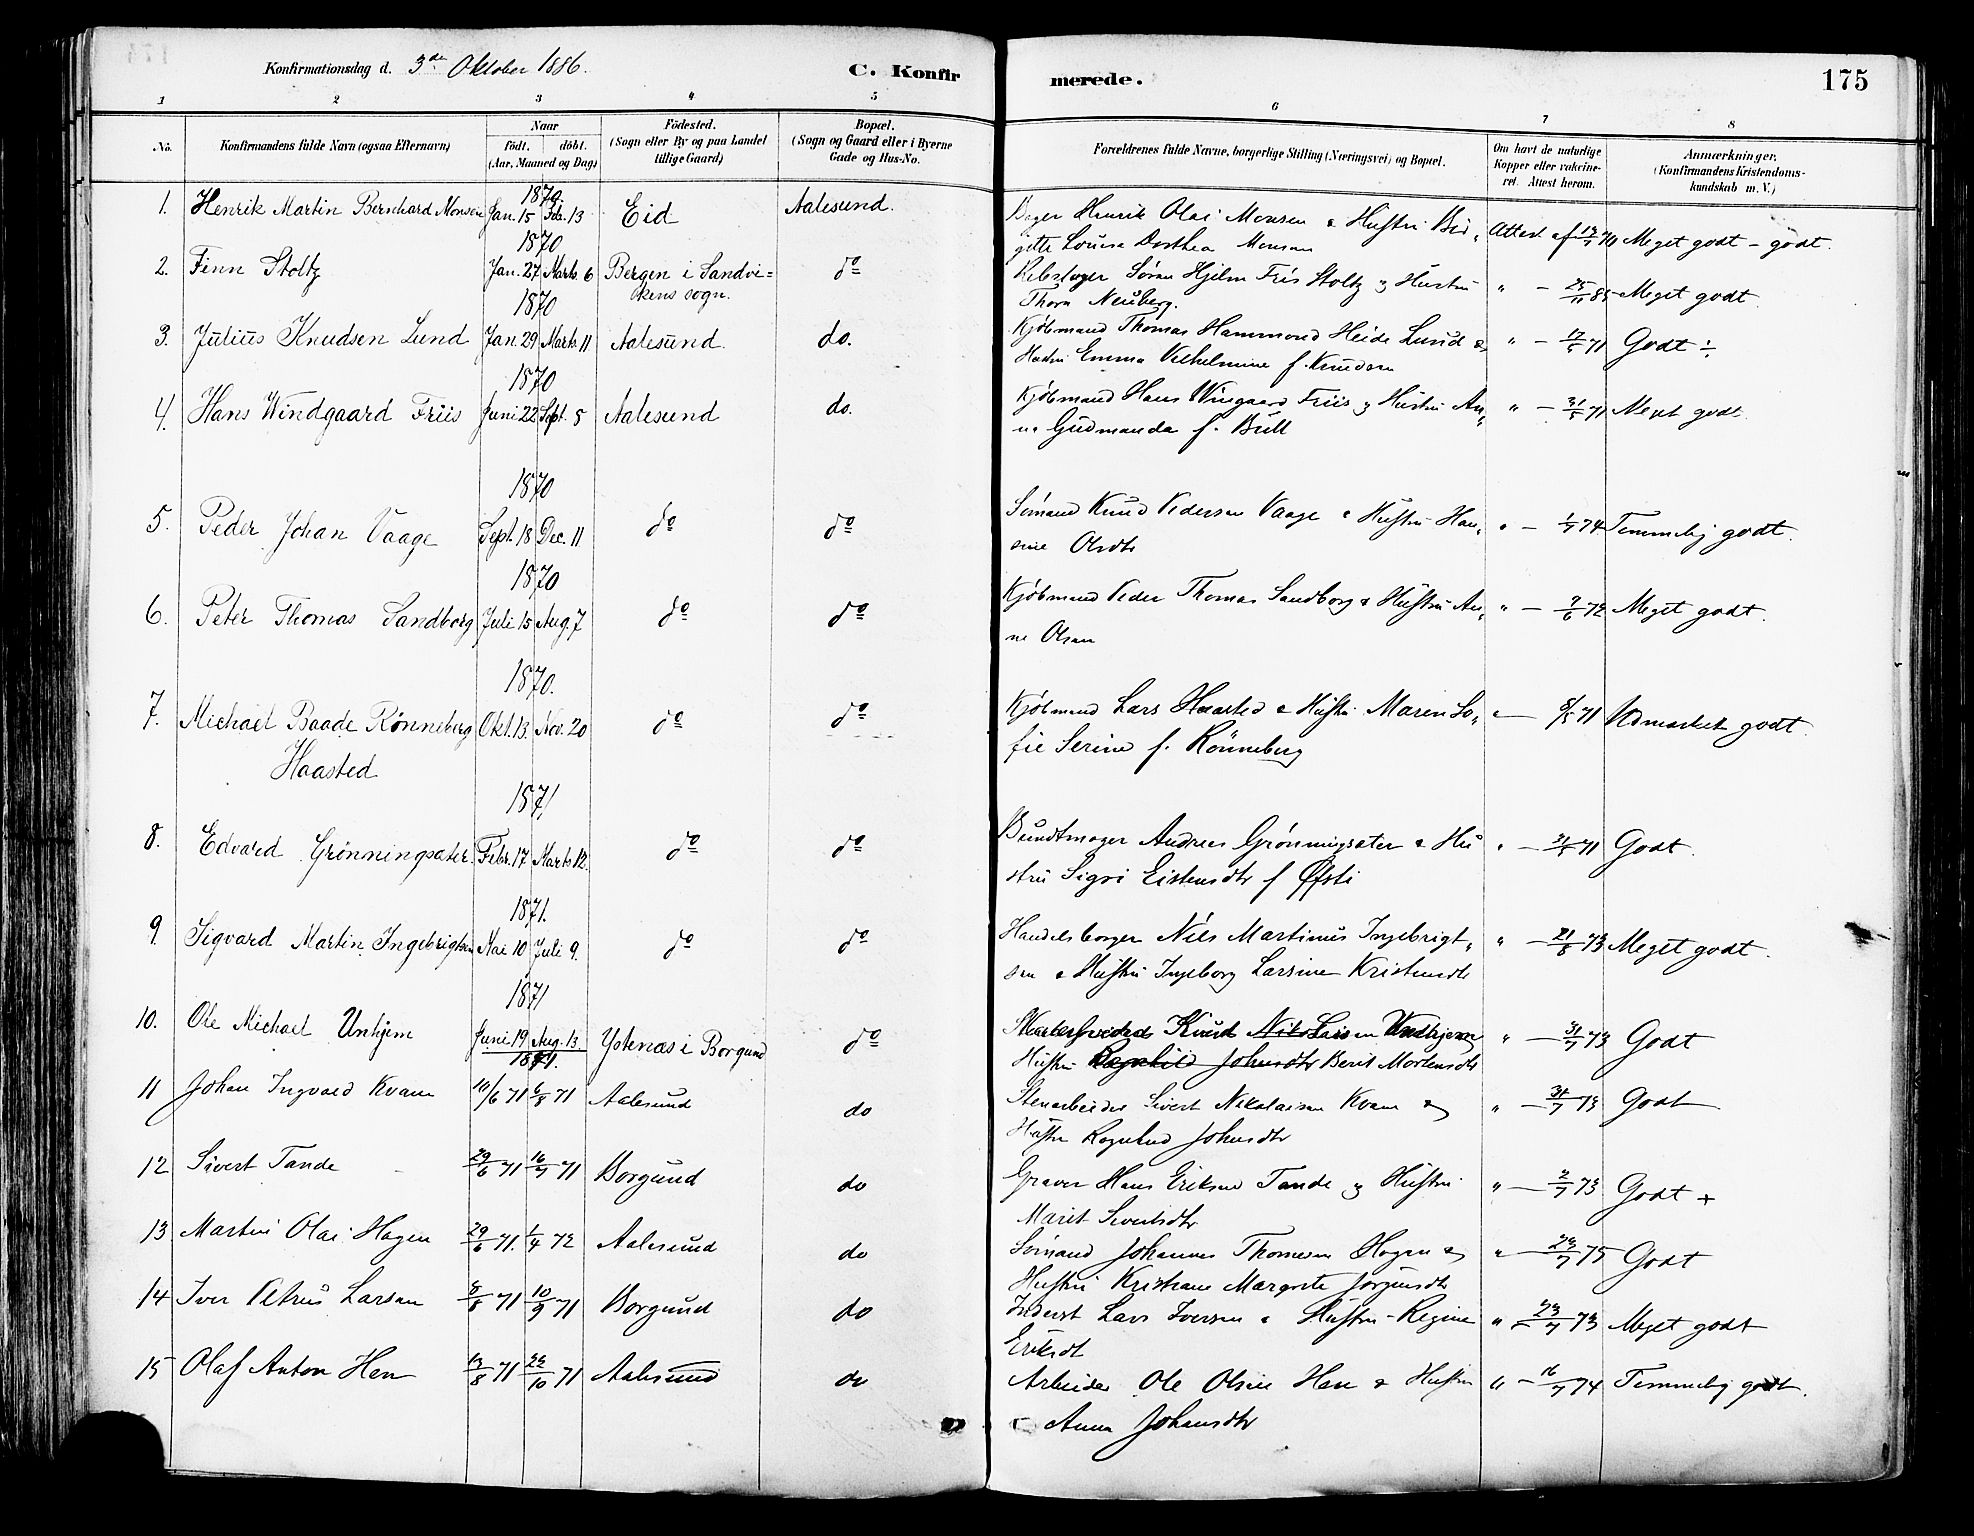 Konfirmationsdag d. 3de Oktober 1886. C. Konfirmerede. 175
1 2 3 4 5 6 7 8
No. Konfirmandens fulde Navn (ogsaa Efternavn) Naar födt. döbt. (Aar, Maaned og Dag) Födested. (Sogn eller By og paa Landet tillige Gaard) Bopæl. (Sogn og Gaard eller i Byerne Gade og Hus-No. Forældrenes fulde Navne, borgerlige Stilling (Næringsvei) og Bopæl. Om havt de naturlige Kopper eller vakcineret. Attest herom. Anmærkninger. (Konfirmandens Kristendomskundskab m. V.)
1870
1. Henrik Martin Bernhard Monsen Jan. 15 Feb. 13 Eid Aalesund. Bager Henrik Olai Monsen & Hustru Bir-
gitte Louise Dorthea Monsen Attest af Meget godt - godt.
1870
2. Finn Stoltz Jan. 27 Marts 6 Bergen i Sandvi=
kens sogn. do Rebslager Sören Hjelm Friis Stoltz og Hustru
Thora Neuberg. " - 25/11 85 Meget godt
1870
3. Julius Knudsen Lund Jan. 29 Marts 11 Aalesund. do. Kjöbmand Thomas Hammond Heide Lund &
Hustru Emma Vilhelmine f. Knudsen " - 17/5 71 Godt ÷
1870
4. Hans Windgaard Friis Juni 22 Sept. 5 Aalesund do. Kjöbmand Hans Wingaard Friis og Hustru An-
na Gudmanda f. Bull " - 31/5 71 Meget godt
1870
5. Peder Johan Vaage Sept. 18 Dec. 11 do do Sömand Knud Pedersen Vaage & Hustru Han-
sine Olsdtr " - 1/7 74 Temmelig godt.
1870
6. Peter Thomas Sandborg Juli 15 Aug. 7 do do Kjöbmand Peder Thomas Sandborg & Hustru An-
ne Olsen " - 7/6 72 Meget godt.
1870.
7. Michael Baade Rönneberg Okt. 13. Nov. 20 do do Kjöbmand Lars Haasted & Hustru Maren So-
Haasted fie Serine f. Rönneberg " - 8/5 71 Udmærket godt.
1871
8. Edvard Grönningsæter Febr. 17 Marts 12. do do Bundtmager Andreas Grönningsæter & Hu
stru Sigri Eistensdtr f Øfsti " - 31/5 71 Godt.
1871.
9. Sigvard Martin Ingebrigtsen Mai 10 Juli 9. do do Handelsborger Nils Martinus Ingebrigt-
sen & Hustru Ingeborg Larsine Kristensdtr " - 21/8 73 Meget godt.
1871
10. Ole Michael Unhjem Juni 19 Aug. 13 Ystenæs i Borgund do Knud Larsen Undhjem
Hustru Ragnhild Johnsdtr Berit Mortensdtr " - 31/7 73 Godt
1871.
11 Johan Ingvald Kvam 10/6 71 6/8 71 Aalesund do Stenarbeider Sivert Nikolaisen Kvam &
Hustru Ragnhild Johnsdtr " - 31/7 73 Godt
12 Sivert Tande 29/6 71 16/7 71 Borgund do Graver Hans Eriksen Tande og Hustru
Marit Sivertsdtr " - 2/7 73 Godt +
13 Martin Olai Hagen 29/6 71. 1/4 72 Aalesund do Sömand Johannes Thomesen Hagen &
Hustru Kristiane Margrete Jörgensdtr " - 23/7 75 Godt
14 Iver Petrus Larsen 3/8 71 10/9 71 Borgund do Inderst Lars Iversen & Hustru Regine
Eriksdt " - 23/7 73 Meget godt
15 Olaf Anton Hen 13/8 71 22/10 71 Aalesund do Arbeider Ole Olsen Hen & Hustru
Anna Johansdtr " - 16/7 74 Temmelig godt.